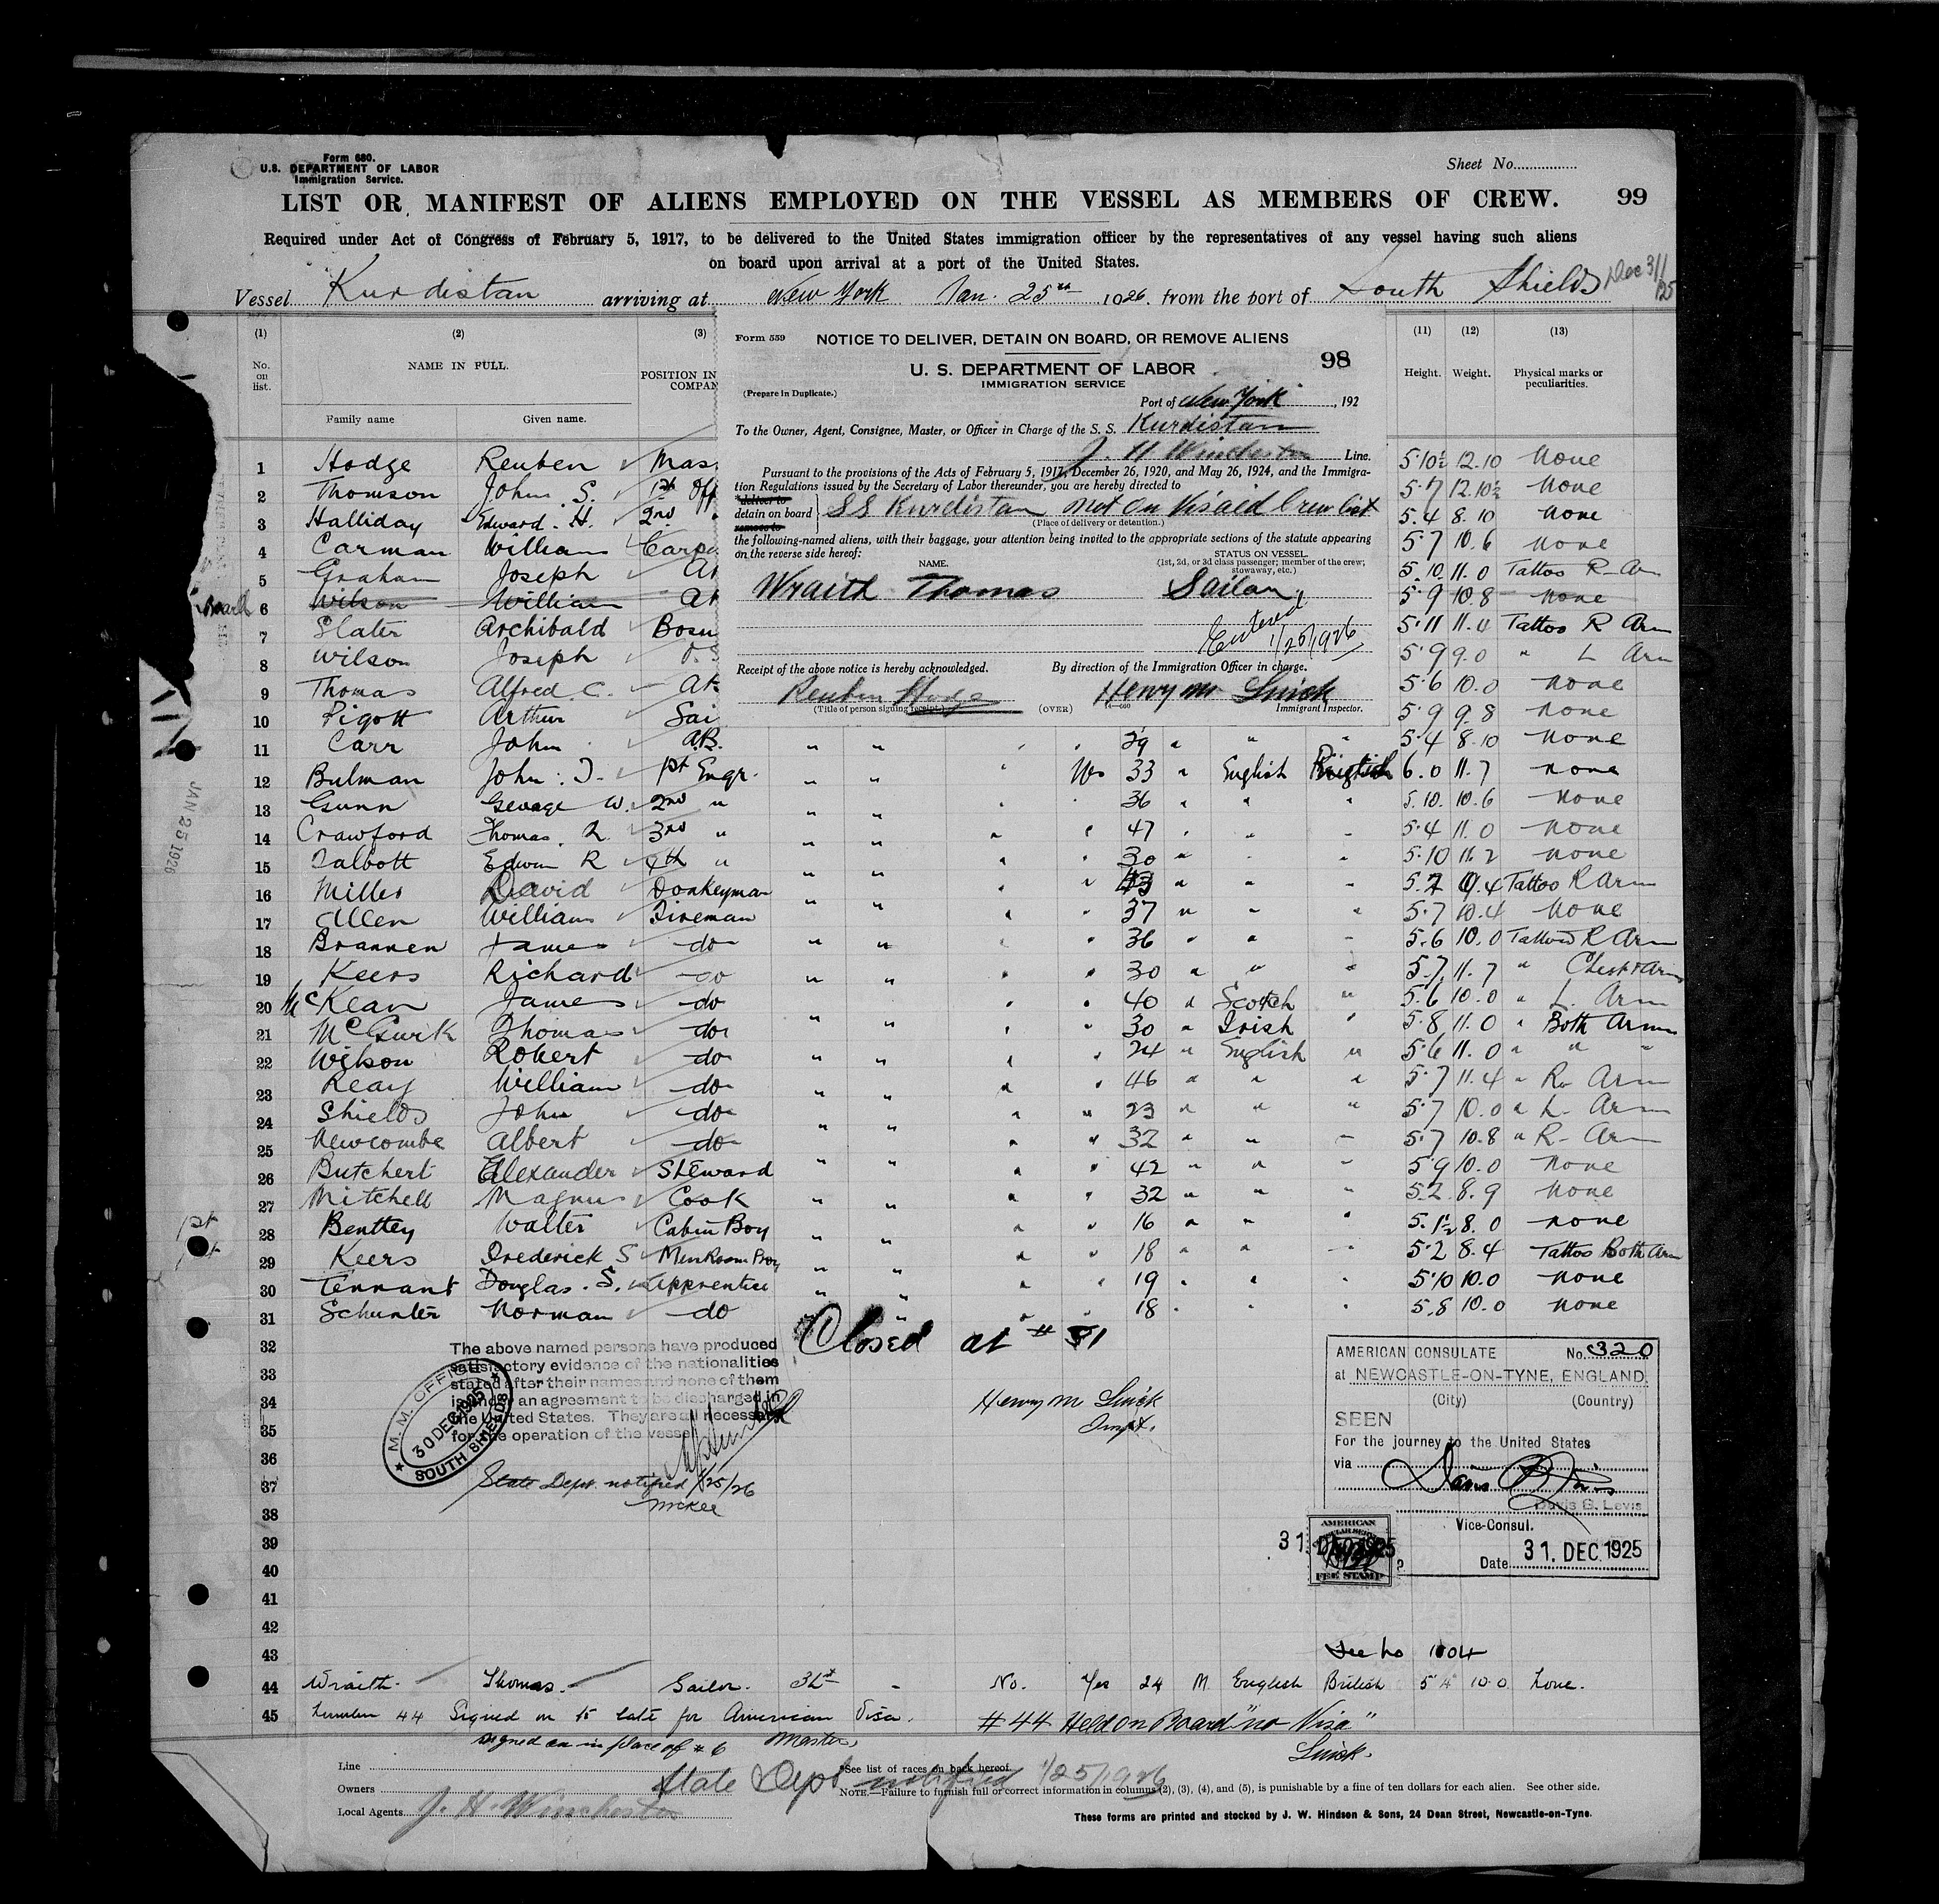 Form 680.
U.S. DEPARTMENT OF LABOR
Immigration Service.
Sheet No.
LIST OR MANIFEST OF ALIENS EMPLOYED ON THE VESSEL AS MEMBERS OF CREW. 99
Required under Act of Congress of February 5, 1917, to be delivered to the United States immigration officer by the representatives of any vessel having such aliens
on board upon arrival at a port of the United States.
Vessel Kurdistan arriving at New York Jan. 25th 1926. from the port of South Shields Dec 31/25
(1) (2) (3) (11) (12) (13)
No. on list. NAME IN FULL. POSITION IN Height. Weight. Physical marks or peculiarities.
Family name Given name.
Form 559 NOTICE TO DELIVER, DETAIN ON BOARD, OR REMOVE ALIENS
U. S. DEPARTMENT OF LABOR 98
IMMIGRATION SERVICE
(Prepare in Duplicate.)
Port of New York, 192
To the Owner, Agent, Consignee, Master, or Officer in Charge of the S. S. Kurdistan
J. H Winchester Line.
Pursuant to the provisions of the Acts of February 5, 1917, December 26, 1920, and May 26, 1924, and the Immigra-
tion Regulations issued by the Secretary of Labor thereunder, you are hereby directed to
*deliver to
detain on board SS Kurdistan not on Visaid Crew list
remove to (Place of delivery or detention.)
the following-named aliens, with their baggage, your attention being invited to the appropriate sections of the statute appearing
on the reverse side hereof:
NAME. STATUS ON VESSEL
(1st, 2d, or 3d class passenger; member of the crew; stowaway, etc.)
Wraith Thomas Sailor
Entered 1/25/1926
Receipt of the above notice is hereby acknowledged. By direction of the Immigration Officer in charge.
Reuben Hodge Henry M Smick
(Title of person signing receipt.) (OVER) Immigrant Inspector.
1 Hodge Reuben Mas 5.10½ 12.10 None
2 Thomson John S. 1st Off 5.7 12.10½ None
3 Halliday Edward. H. 2nd 5.4 8.10 None
4 Carman William Carp 5.7 10.6 None
5 Graham Joseph 5.10 11.0 Tattoo R Arm
6 Wilson William 5.9 10.8 none
7 Slater Archibald Bosu 5.11 11.0 Tattoo R Arm
8 Wilson Joseph 5.9 9.0 " L Arm
9 Thomas Alfred C. 5.6 10.0 None
10 Pigott Arthur Sai 5.9 9.8 None
11 Carr John A.B. " " 29 " " " 5.4 8.10 None
12 Bulman John. T. 1st Engr. " " Yes 33 " English British 6.0 11.7 None
13 Gunn George W. 2nd " " " 36 " " " 5.10 10.6 None
14 Crawford Thomas. R. 3rd " " " 47 " " " 5.4 11.0 None
15 Talbott Edwin R 4th " " " 30 " " " 5.10 11.2 None
16 Miller David Donkeyman " " " " " Tattoo R Arm
17 Allen William Fireman " " 37 " " " 5.7 10.4 None
18 Brannen James do " " 36 " " " 5.6 10.0 Tattoo R Arm
19 Keers Richard do " " 30 " " " 5.7 11.7 " Chest & Arms
20 McKean James do " " 40 " Scotch " 5.6 10.0 " L. Arm
21 McGurk Thomas do " " 30 " Irish " 5.8 11.0 " Both Arms
22 Wilson Robert do " " 24 " English " 5.6 11.0 " " "
23 Reay William do " " 46 " " " 5.7 11.4 " R Arm
24 Shields John do " " 23 " " " 5.7 10.0 " L Arm
25 Newcombe Albert do " " 32 " " " 5.7 10.8 " R Arm
26 Butchert Alexander Steward " " 42 " " " 5.9 10.0 None
27 Mitchell Magnus Cook " " 32 " " " 5.2 8.9 None
28 Bentley Walter Cabin Boy " " 16 " " " 5.1½ 8.0 None
29 Keers Frederick S " " 18 " " " 5.2 8.4 Tattoo Both Arm
30 Tennant Douglas. S. Apprentice " " 19 " " " 5.10 10.0 None
31 Schunter Norman do " " 18 " " " 5.8 10.0 None
JAN 25 1926
32 Closed at # 31
The above named persons have produced
satisfactory evidence of the nationalities
stated after their names and none of them
is under an agreement to be discharged in
the United States. They are all necessary
for the operation of the vessel
M. M. OFFICE
30 DEC 1925
SOUTH SHIELDS
Henry M Smick
Inspt.
State Dept. notified 1/25/26
McKee
AMERICAN CONSULATE No. 320
at NEWCASTLE-ON-TYNE, ENGLAND
(City) (Country)
SEEN
For the journey to the United States
via
Davis B. Levis
Vice-Consul.
Date 31. DEC. 1925
AMERICAN
FEE STAMP
33
34
35
36
37
38
39
40
41
42
43
44 Wraith. Thomas. Sailor. No. Yes 24 M English British 5 4 10.0 None.
45 Number 44 Signed on to late for American Visa. # 44 Held on Board "no Visa"
signed on in place of # 6 Master, Smick.
Line
Owners State Dept notified 1/25/1926
*See list of races on back hereof.
NOTE.—Failure to furnish full or correct information in columns (2), (3), (4), and (5), is punishable by a fine of ten dollars for each alien. See other side.
Local Agents J. H. Winchester
These forms are printed and stocked by J. W. Hindson & Sons, 24 Dean Street, Newcastle-on-Tyne.